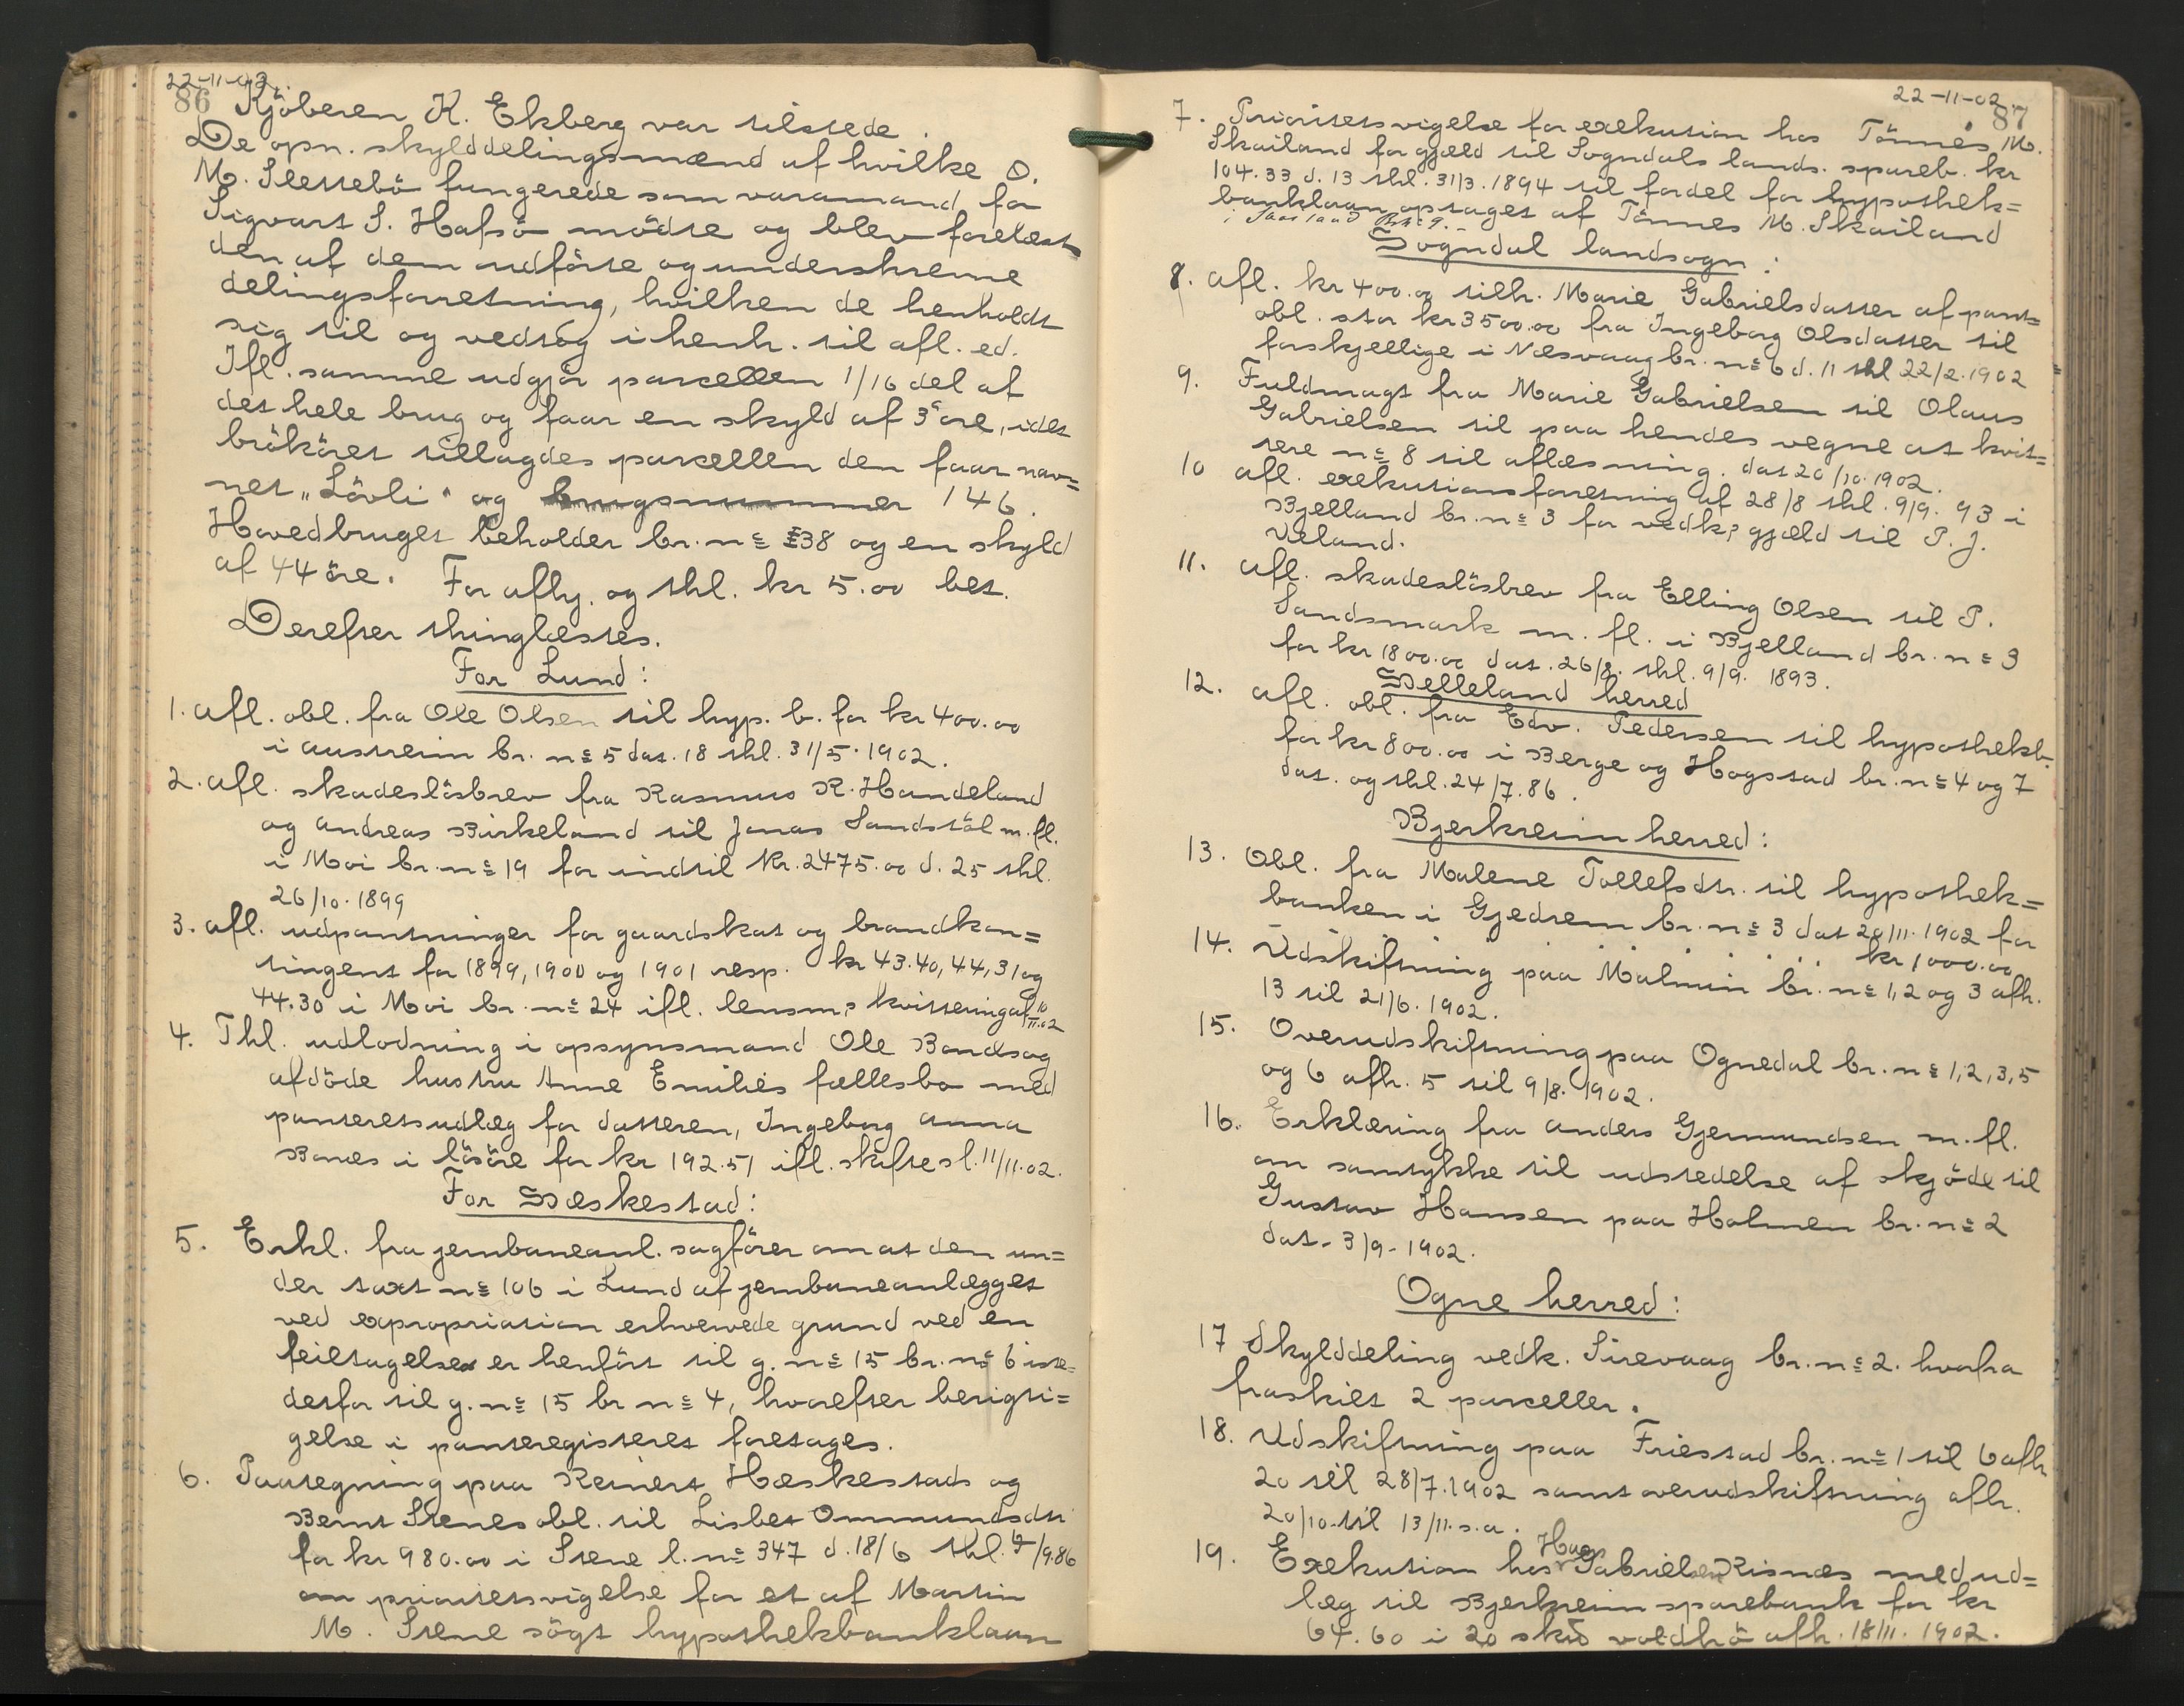 22-11-02.
86 Kjöberen K. Ekberg var tilstede.
De opn. skylddelingsmænd af hvilke O.
M. Slettebö fungerede som varamand for
Sigvart S. Hafsö mödte og blev forelæst
den af dem udförte og underskrevne
delingsforretning, hvilken de henholdt
sig til og vedtog i henh. til afl. ed.
Ifl. samme udgjör parcellen 1/16 del af
det hele brug og faar en skyld af 3 öre, idet
brököret tillagdes parcellen den faar nav=
net „Lövli" og brugsnummer 146.
Hovedbruget beholder br. no 38 og en skyld
af 44 öre. For afhj. og thl. kr 5.00 bet.
Derefter thinglæstes.
For Lund:
1. Afl. obl. fra Ole Olsen til hyp. b. for kr 400.00
i Austreim br. no 5 dat. 18 thl. 31/5. 1902.
2. Afl. skadeslösbrev fra Rasmus R. Handeland
og Andreas Birkeland til Jonas Sandstöl m. fl.
i Moi br. no 19 for indtil Kr. 2475.00 d. 25 thl.
26/10. 1899
3. Afl. udpantninger for gaardskat og brandkon=
tingent for 1899, 1900 og 1901 resp. kr 43.40, 44,31 og
44.30 i Moi br. no 24 ifl. lensm.s kvittering af 10/11.02
4. Thl. udlodning i opsynsmand Ole Bandsog
afdöde hustru Anne Emilies fællesbo med
panteretsudlæg for datteren, Ingeborg Anna
Banes i lösöre for kr 192.51 ifl. skiftesl. 11/11.02.
For Hæskestad:
5. Erkl. fra jernbaneanl. sagförer om at den un=
der taxt no 106 i Lund af jernbaneanlægget
ved expropriation erhvervede grund ved en
feiltagelse er henfört til g. no 15 br. no 6 iste=
detfor til g. no 15 br no 4, hvorefter berigti=
gelse i panteregisteret foretages.
6. Paategning paa Reinert Hæskestads og
Bernt Stenes obl. til Lisbet Ommundsdtr
for kr 980.00 i Stene l. no 347 d. 18/6 thl. /9.86
om prioritetsvigelse for et af Martin
M. Stene sögt hypothekbanklaan
22-11-02.
87
7. Prioritetsvigelse for exekution hos Tönnes M.
Skailand for gjæld til Sogndals lands. spareb. kr
104.33 d. 13 thl. 31/3. 1894 til fordel for hypothek=
banklaan optaget af Tönnes M. Skailand
i Saasland Br. no 9.
Sogndal landsogn:
8. Afl. kr 400.00 tilh. Marie Gabrielsdatter af pant=
obl. stor kr 3500.00 fra Ingeborg Olsdatter til
forskjellige i Næsvaag br. no 6 d. 11 thl 22/2. 1902
9. Fuldmagt fra Marie Gabrielsen til Olaus
Gabrielsen til paa hendes vegne at kvit=
tere no 8 til aflæsning. dat 20/10. 1902.
10 Afl. exekutionsforretning af 28/8 thl. 9/9. 93 i
Bjelland br. no 3 for vedk.s gjæld til P. J.
Ueland.
11. Afl. skadeslösbrev fra Elling Olsen til P.
Sandsmark m. fl. i Bjelland br. no 3
for kr 1800.00 dat. 26/8. thl. 9/9. 1893.
Helleland herred
12. Afl. obl. fra Edv. Pedersen til hypothekb.
for kr 800.00 i Berge og Hogstad br. no 4 og 7
dat. og thl. 24/7. 86.
Bjerkreim herred:
13. Obl. fra Malene Tollefsdtr. til hypothek=
banken i Gjedrem br. no 3 dat 20/11. 1902 for
kr 1000.00
14. Udskiftning paa Malmin br. no 1, 2 og 3 afh.
13 til 21/6. 1902.
15. Overudskiftning paa Ognedal br. no 1, 2, 3, 5
og 6 afh. 5 til 9/8. 1902.
16. Erklæring fra Anders Gjermundsen m. fl.
om samtykke til udstedelse af skjöde til
Gustav Hansen paa Holmen br. no 2
dat. 3/9. 1902.
Ogne herred:
17 Skylddeling vedk. Sirevaag br. no 2. hvorfra
fraskilt 2 parceller.
18. Udskiftning paa Friestad br. no 1 til 6 afh
20 til 28/7. 1902 samt overudskiftning afh.
20/10. til 13/11. s. a.
19. Exekution hos Gabrielsen Risnæs med ud=
læg til Bjerkreim sparebank for kr
64.60 i 20 skb voldhö afh. 18/11. 1902.